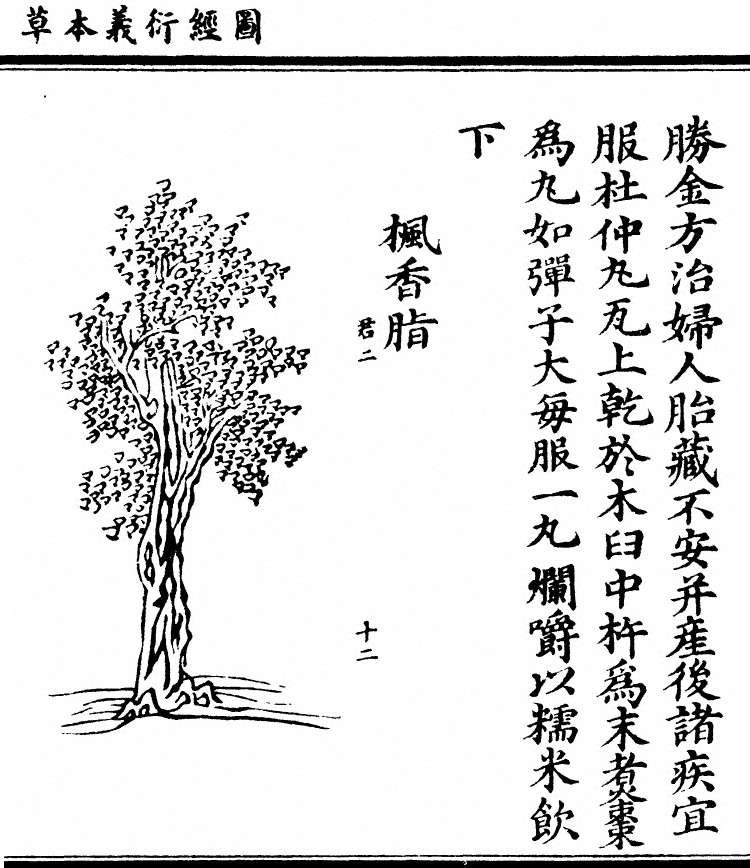 圖經衍義本草
勝金方治婦人胎藏不安并產後諸疾宜
服杜仲丸瓦上乾於木臼中杵爲末煑棗
爲丸如彈子大每服一丸爛嚼以糯米飲
下
楓香脂
君二
十二